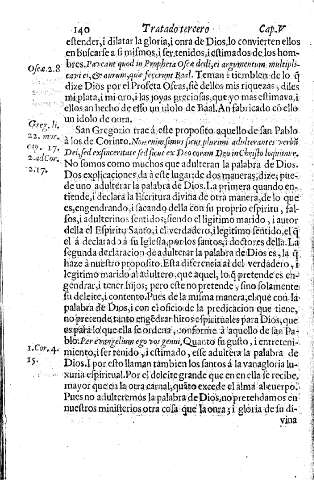 140 Tratado tercero Cap. V
estender, i dilatar la gloria, i onra de Dios, lo convierten ellos
en buscarse a si mismos, i ser tenidos, i estimados de los hom-
Oseæ. 2.8 bres. Pascant quod in Propheta Oseæ dedi, ei argumentum multipli-
cavi ei, & aurum, quæ fecerunt Baal. Teman i tiemblen de lo q̃
dize Dios por el Profeta Oseas, i sẽ dellos mis riquezas, i diles
mi plata, i mi oro, i las joyas preciosas, que yo mas estimava, i
ellos an hecho de esso un idolo de Baal. An fabricado cõ ello
un idolo de onra.
Greg. li. San Gregorio trae à este proposito aquello de san Pablo
22. mor. à los de Corinto. Non enim sumus sicut plurimi adulterantes verbũ
cap. 17. Dei, sed ex sinceritate sed sicut ex Deo coram Deo in Christo loquimur.
2. ad Cor. No somos como muchos que adulteran la palabra de Dios.
2.17. Dos explicaciones da à este lugar de dos maneras, dize; pue-
de uno adulterar la palabra de Dios. La primera quando en-
tiende, i declara la Escritura divina de otra manera, de lo que
es, engendrando, i sacando della con su proprio espiritu, fal-
sos, i adulterinos sentidos; siendo el ligitimo marido, i autor
della el Espiritu Santo, i el verdadero, i legitimo sentido, el q̃
el à declarado à su Iglesia, por los santos, i doctores della. La
segunda declaracion de adulterar la palabra de Dios es, la q̃
haze à nuestro proposito. Esta diferencia ai del verdadero, i
legitimo marido al adultero, que aquel, lo q̃ pretende es en-
gendrar, i tener hijos; pero este no pretende, sino solamente
su deleite, i contento. Pues de la misma manera, el que con la
palabra de Dios, i con el oficio de la predicacion que tiene,
no pretende tanto engẽdrar hijos espirituales para Dios, que
es para lo que ella se ordena, conforme à aquello de san Pa-
1. Cor. 4. blo. Per evangelium ego vos genui, Quanto su gusto, i entreteni-
15. miento, i ser tenido, i estimado, esse adultera la palabra de
Dios. I por esto llaman tambien los santos à la vanagloria lu-
xuria espiritual. Por el deleite grande que en ella se recibe,
mayor que en la otra carnal, quãto excede el alma al cuerpo.
Pues no adulteremos la palabra de Dios, no pretendamos en
nuestros ministerios otra cosa que la onra, i gloria de su di-
vina